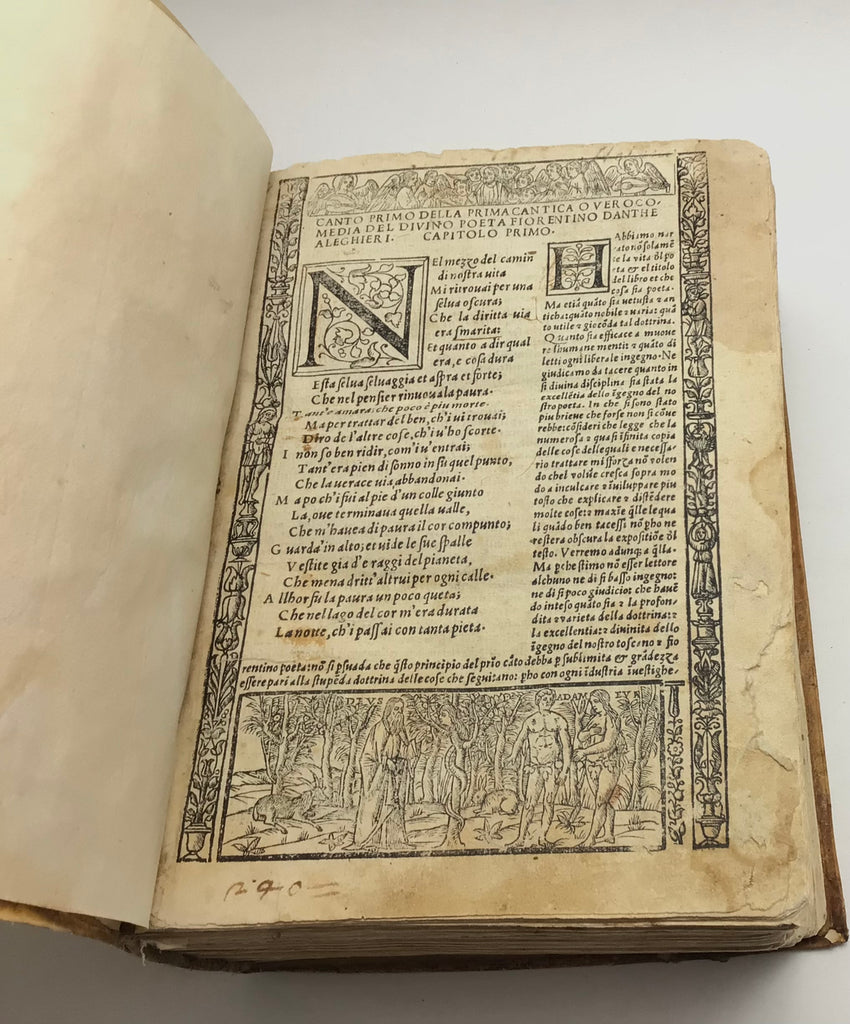 CANTO PRIMO DELLA PRIMA CANTICA OVERO CO-
MEDIA DEL DIVINO POETA FIORENTINO DANTHE
ALEGHIERI. CAPITOLO PRIMO.
NEl mezzo del camin
di nostra uita
Mi ritrouai per una
selua oscura;
Che la diritta uia
era smarita:
Et quanto a dir qual
era, e cosa dura
Esta selua seluaggia et aspra et forte;
Che nel pensier rinuoua la paura.
Tant'e amara; che poco è piu morte.
Ma per trattar del ben, ch'i ui trouai;
Diro de l'altre cose, ch'i u'ho scorte.
I non so ben ridir, com'i u'entrai;
Tant'era pien di sonno in su quel punto,
Che la uerace uia abbandonai.
Ma po ch'i fui al pie d'un colle giunto
La, oue terminaua quella ualle,
Che m'hauea di paura il cor compunto;
Guarda'in alto; et uide le sue spalle
Vestite gia d'e raggi del pianeta,
Che mena dritt'altrui per ogni calle.
Allhor fu la paura un poco queta;
Che nel lago del cor m'era durata
La notte, ch'i passai con tanta pieta.
HAbbiamo nar
rato nō solamē
te la vita ďl po
eta & el titolo
del libro et che
cosa sia poeta.
Ma etiā quāto sia uetusta ꝛ an
ticha: quāto nobile ꝛ uaria: quā
to utile ꝛ giocōda tal dottrina.
Quanto sia efficace a muoue
re lhumane menti: ꝛ quāto di
letti ogni liberale ingegno. Ne
giudicamo da tacere quanto in
si diuina disciplina sia stata la
excellētia dello īgegno del no
stro poeta. In che si sono stato
piu brieue che forse non si cōue
rebbe: cōsideri che legge che la
numerosa ꝛ quasi īfinita copia
delle cose delle quali e necessa
rio trattare mi sforza nō volen
do chel volūe cresca sopra mo
do a inculcare ꝛ īuiluppare piu
tosto che explicare ꝛ distēdere
molte cose: ꝛ maxīe q̄lle le qua
li quādo ben tacessi nō pho ne
restera obscura la expositiōe ďl
testo. Verremo adunqꝫ a q̄lla.
Ma pche stimo nō esser lettore
alchuno ne di si basso ingegno:
ne di si poco giudicio: che hauē
do inteso quāto sia ꝛ la profon
dita ꝛ varieta della dottrina: ꝛ
la excellentia: ꝛ diuinita dello
īgegno del nostro toscano ꝛ fio
rentino poeta: nō si psuada che q̄sto principio del prīo cāto debba p sublimita & grādezza
essere pari alla stupēda dottrina delle cose che seguitano: pho con ogni īdustria īuestighe-
ADAM EVA